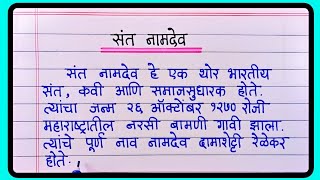 संत नामदेव
संत नामदेव हे एक थोर भारतीय
संत, कवी आणि समाजसुधारक होते.
त्यांचा जन्म २६ ऑक्टोंबर १२७० रोजी
महाराष्ट्रातील नरसी बामणी गावी झाला.
त्यांचे पूर्ण नाव नामदेव दामाशेट्टी रेळेकर
होते.